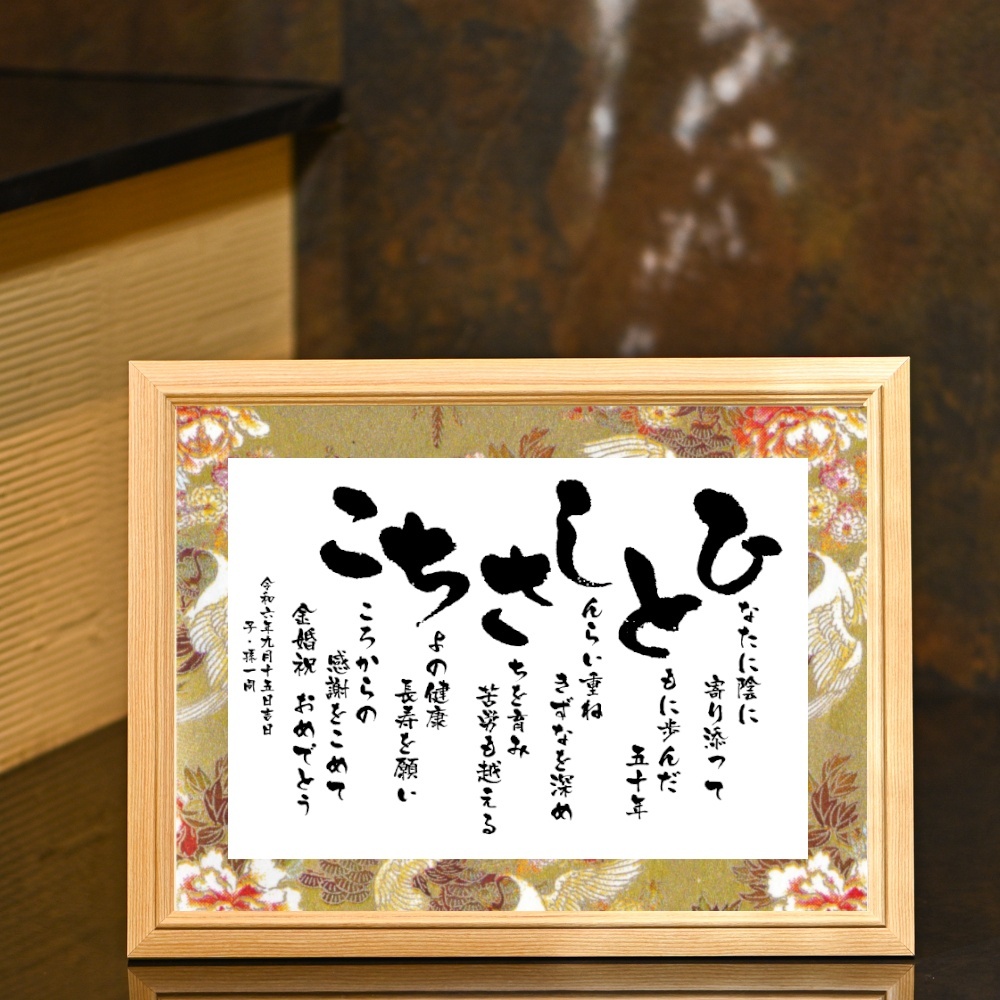 ひなたに陰に
寄り添って
ともに歩んだ
五十年
しんらい重ね
きずなを深め
さちを育み
苦労も越える
ちよの健康
長寿を願い
こころからの
感謝をこめて
金婚祝 おめでとう
令和六年九月十五日吉日
子・孫一同